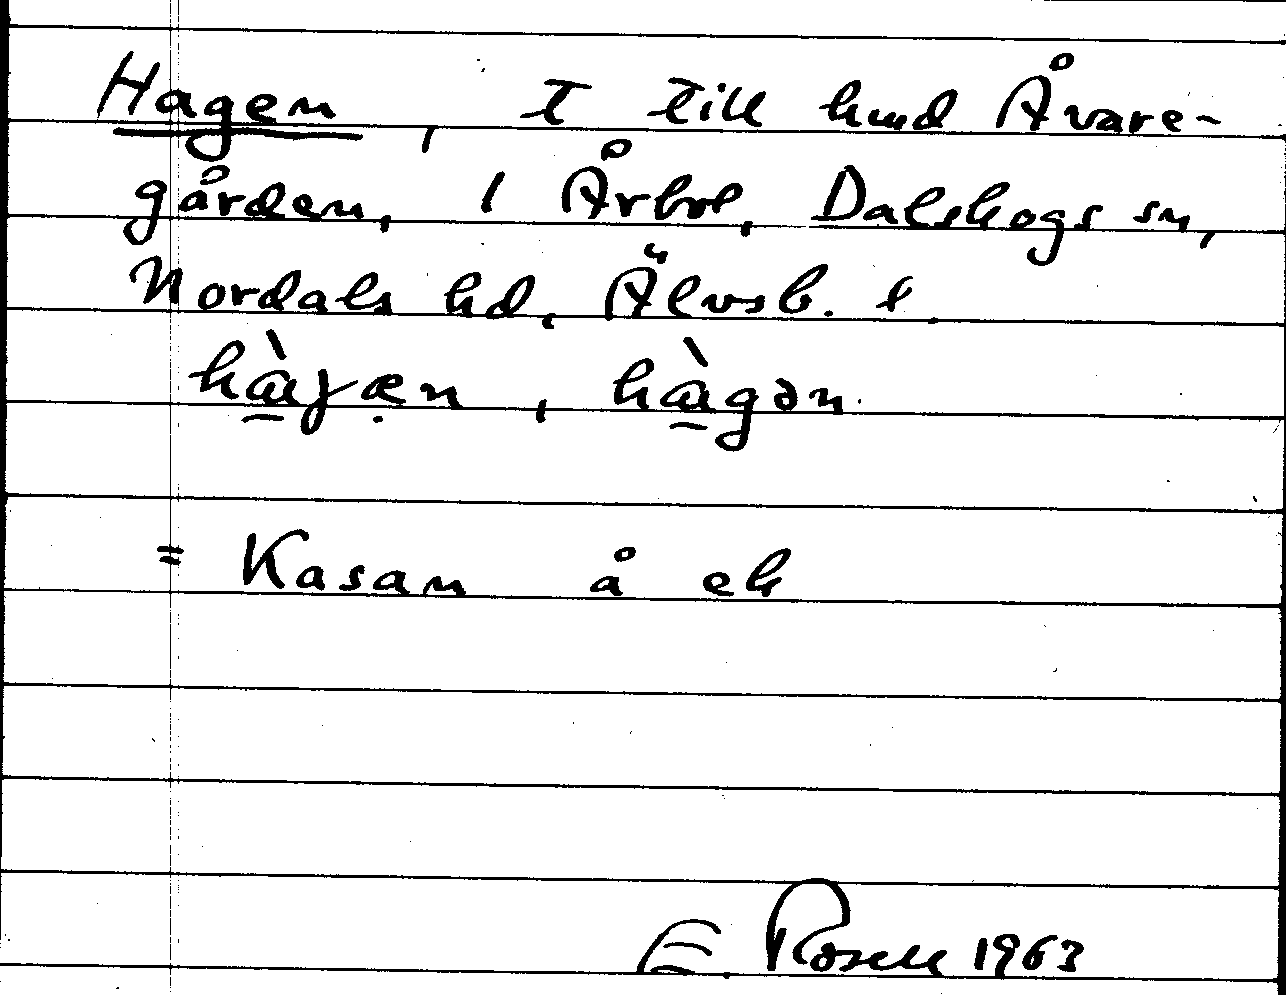 Hagen, t till hmd Åvare-
gården, 1 Årbol, Dalskogs sn,
Nordals hd, Älvsb. l
hàɣæn, hàgən.
= Kasan å ek
E. Rosell 1963